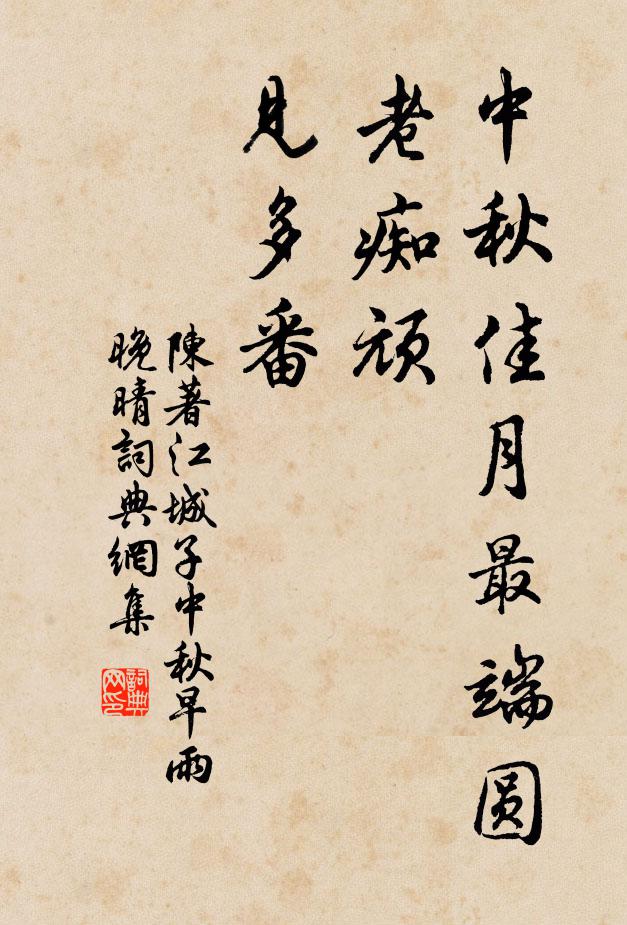 中秋佳月最端圆
老痴顽
见多番
陳著江城子中秋早雨
晚晴詞典網集
詞典网印